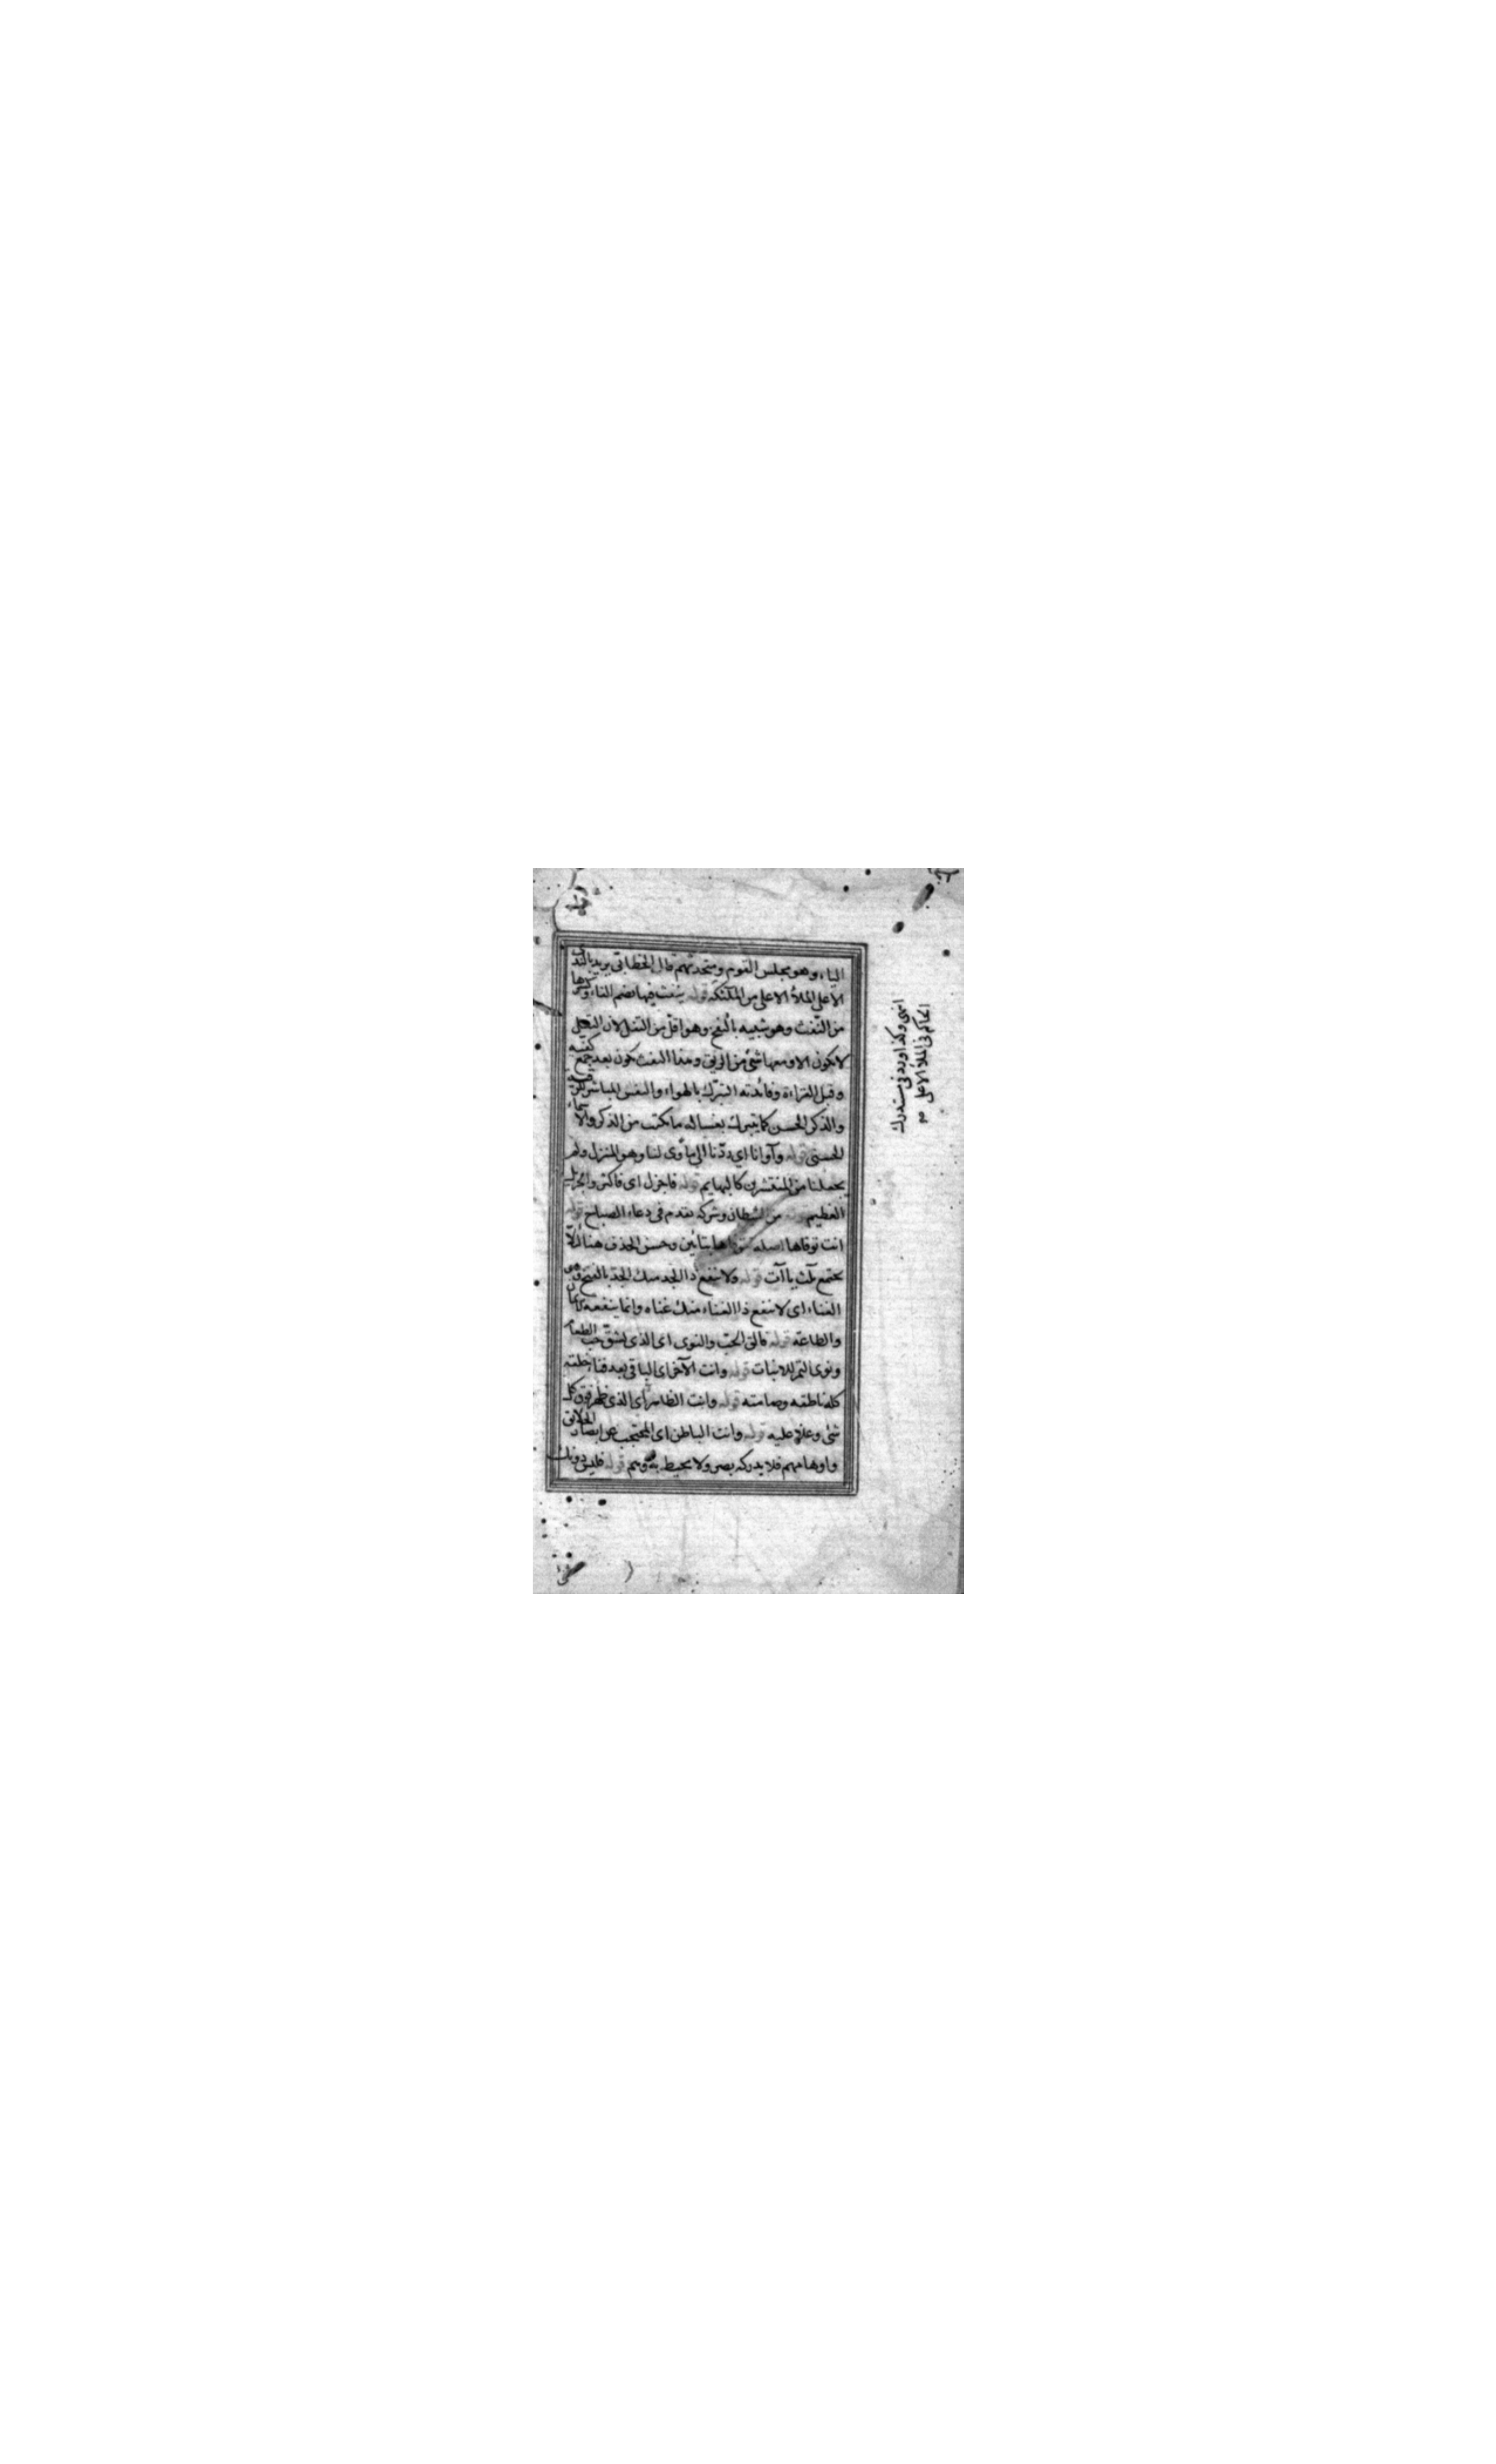 الياء وهو مجلس القوم ومتحدثهم قال الخطابي يريد بالندى
الاعلى الملأ الاعلى من الملئكة قوله ينفث فيهما بضم الفاء وكسرها
من النفث وهو شبيه بالنفخ وهو اقل من التفل لان التفل
لا يكون الا ومعها شئ من الريق وهذا النفث يكون بعد جمع كفيه
وقبل القراءة وفائدته التبرك بالهواء والنفس المباشر للرقية
والذكر الحسن كما يتبرك بغسالة ما يكتب من الذكر والاسماء
الحسنى قوله وآوانا اي ردنا الى مأوى لنا وهو المنزل ولم
يجعلنا من المنتشرين كالبهايم قوله فاجزل اى فاكثر والجزيل
العظيم قوله من الشيطان وشركه تقدم فى دعاء الصباح قوله
انت توفاها اصله تتوفاها بتائين وحسن الحذف هنا لئلا
يجتمع ثلث ياآت قوله ولا ينفع ذا الجد منك الجد بالفتح
الغناء اى لا ينفع ذا الغناء منك غناه وانما ينفعه
والطاعة قوله فالق الحب والنوى اى الذى يشق حب الطعام
ونوى التمر للانبات قوله وانت الآخر اى الباقى بعد فناء خلقه
كله ناطقه وصامته قوله وانت الظاهر اى الذى ظهر فوق كل
شئ وعلا عليه قوله وانت الباطن اى المحتجب عن ابصار الخلائق
واوهامهم فلا يدركه بصر ولا يحيط به وهم قوله فليس دونك
انتهى وكذا ورد فى مستدرك
الحاكم فى الملأ الاعلى